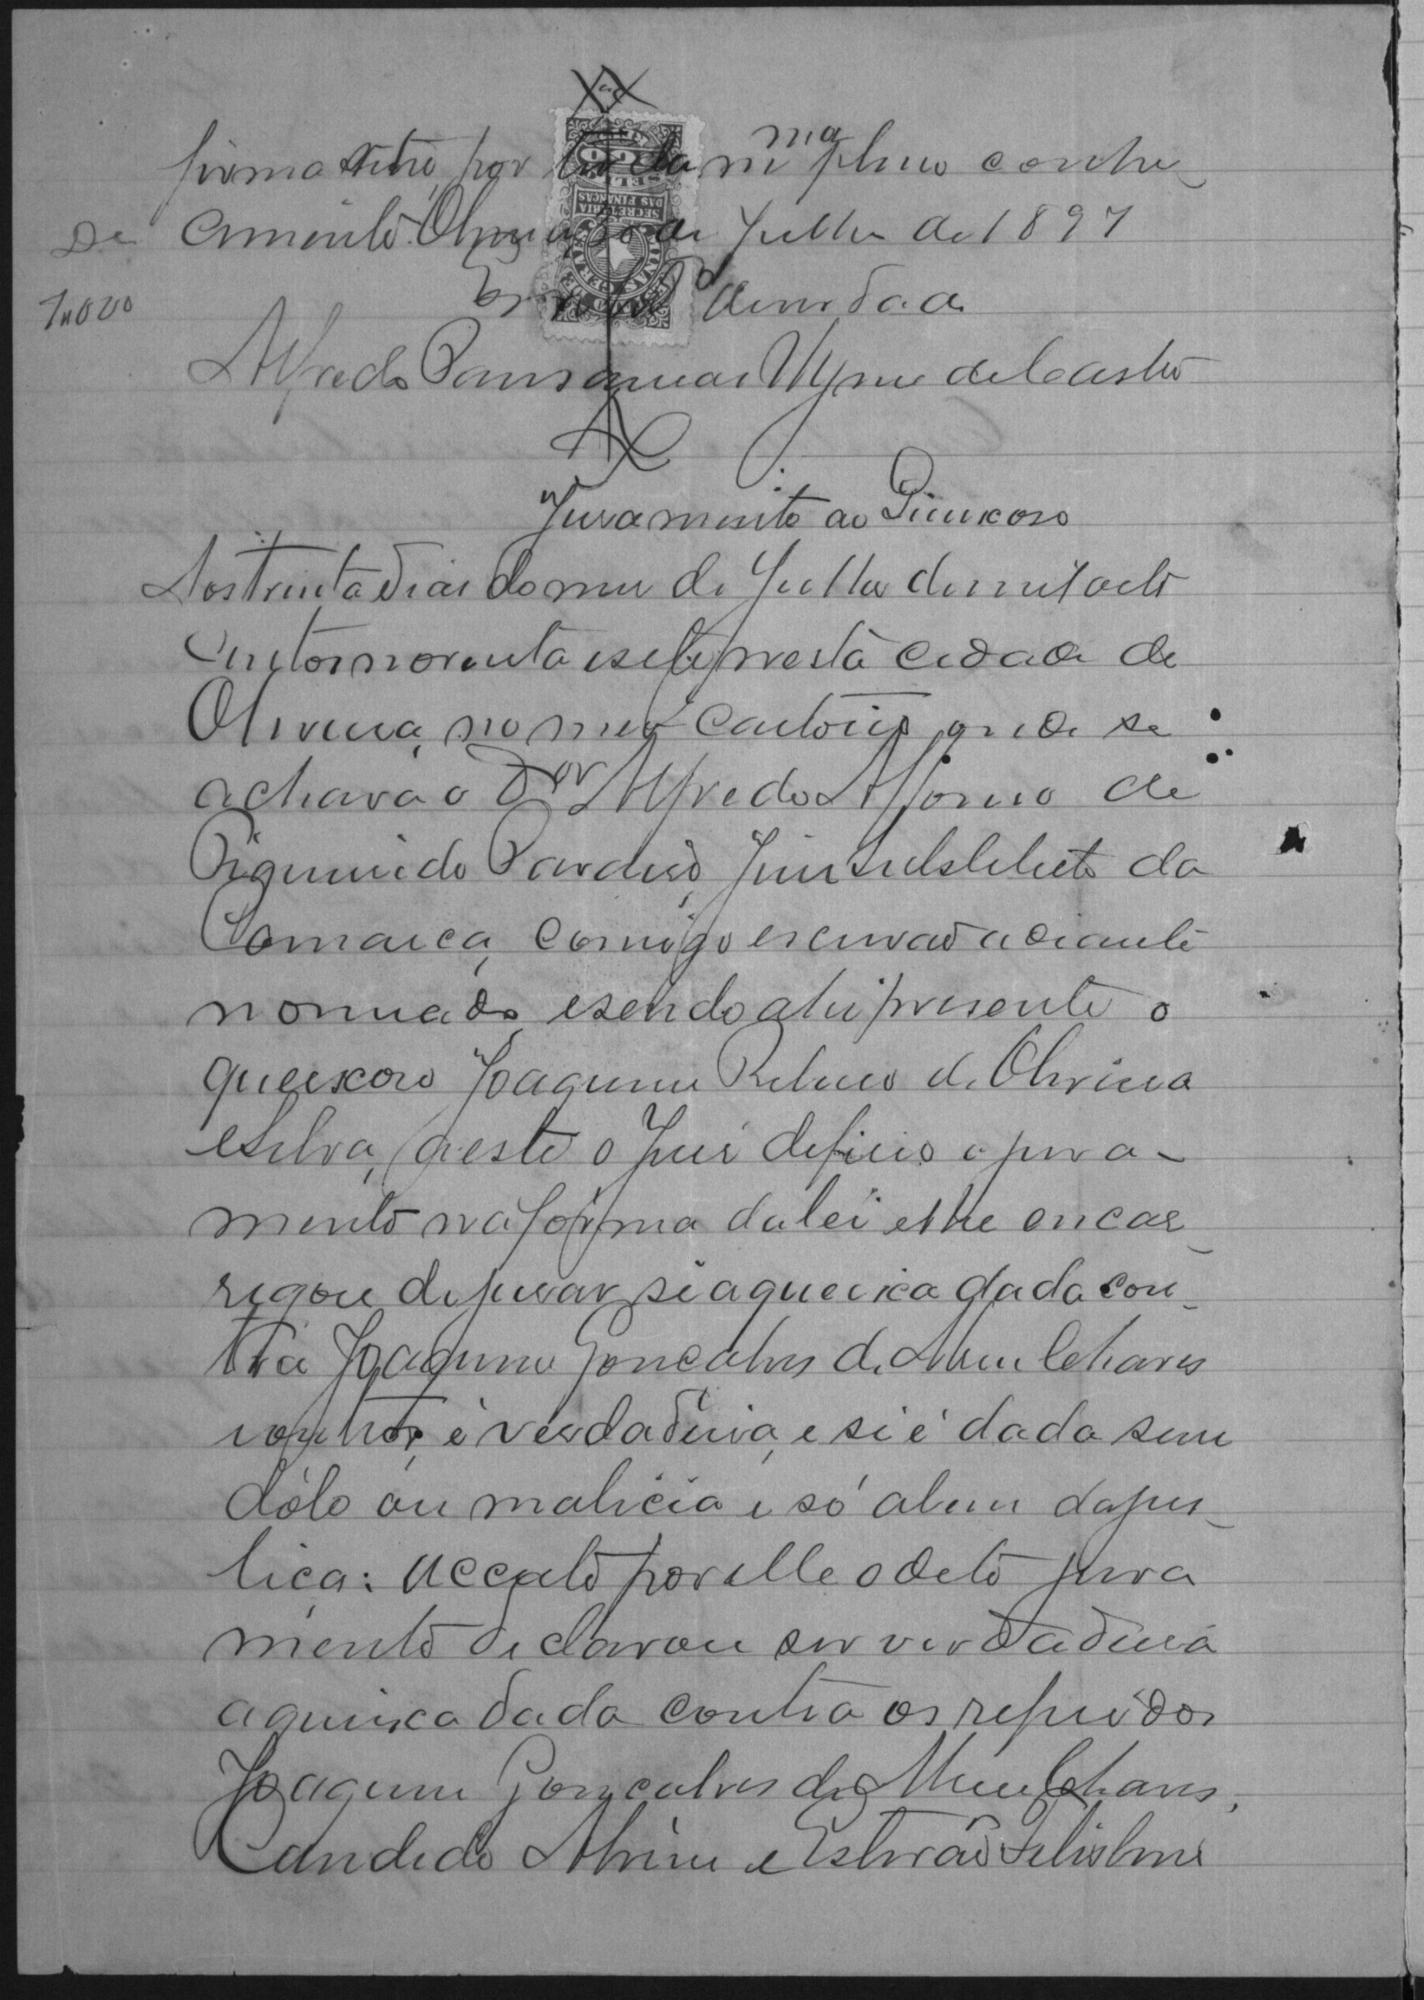 firma retro, por ter della m ma pleno conhe-
cimento. Oliveira, 30 de Julho de 1897
De
1$000
Em da verdade
Alfredo de Castro
SECRETARIA
DAS FINANÇAS
Juramento ao Queixoso
Aos trinta dias do mez de Julho de mil oito
centos noventa e sete, nesta cidade de
Oliveira, no meu cartorio, onde se
achava o Dor Alfredo Affonso de
Figueiredo Pardiso, Juiz Substituto da
Comarca, comigo escrivão adiante
nomeado, e sendo ahi presente o
queixoso Joaquim Ribeiro de Oliveira
e Silva, a este o Juiz deferio o jura-
mento na forma da lei e lhe encar-
regou de jurar si a queixa dada con-
tra Joaquim Gonçalves de Chaves
e outros, é verdadeira, e si é dada sem
dólo ou malicia e só a bem da jus-
tiça: Acceito por elle o dito jura
mento declarou ser verdadeira
a queixa dada contra os referidos
Joaquim Gonçalves de Chaves,
Candido Alvim e Estevão